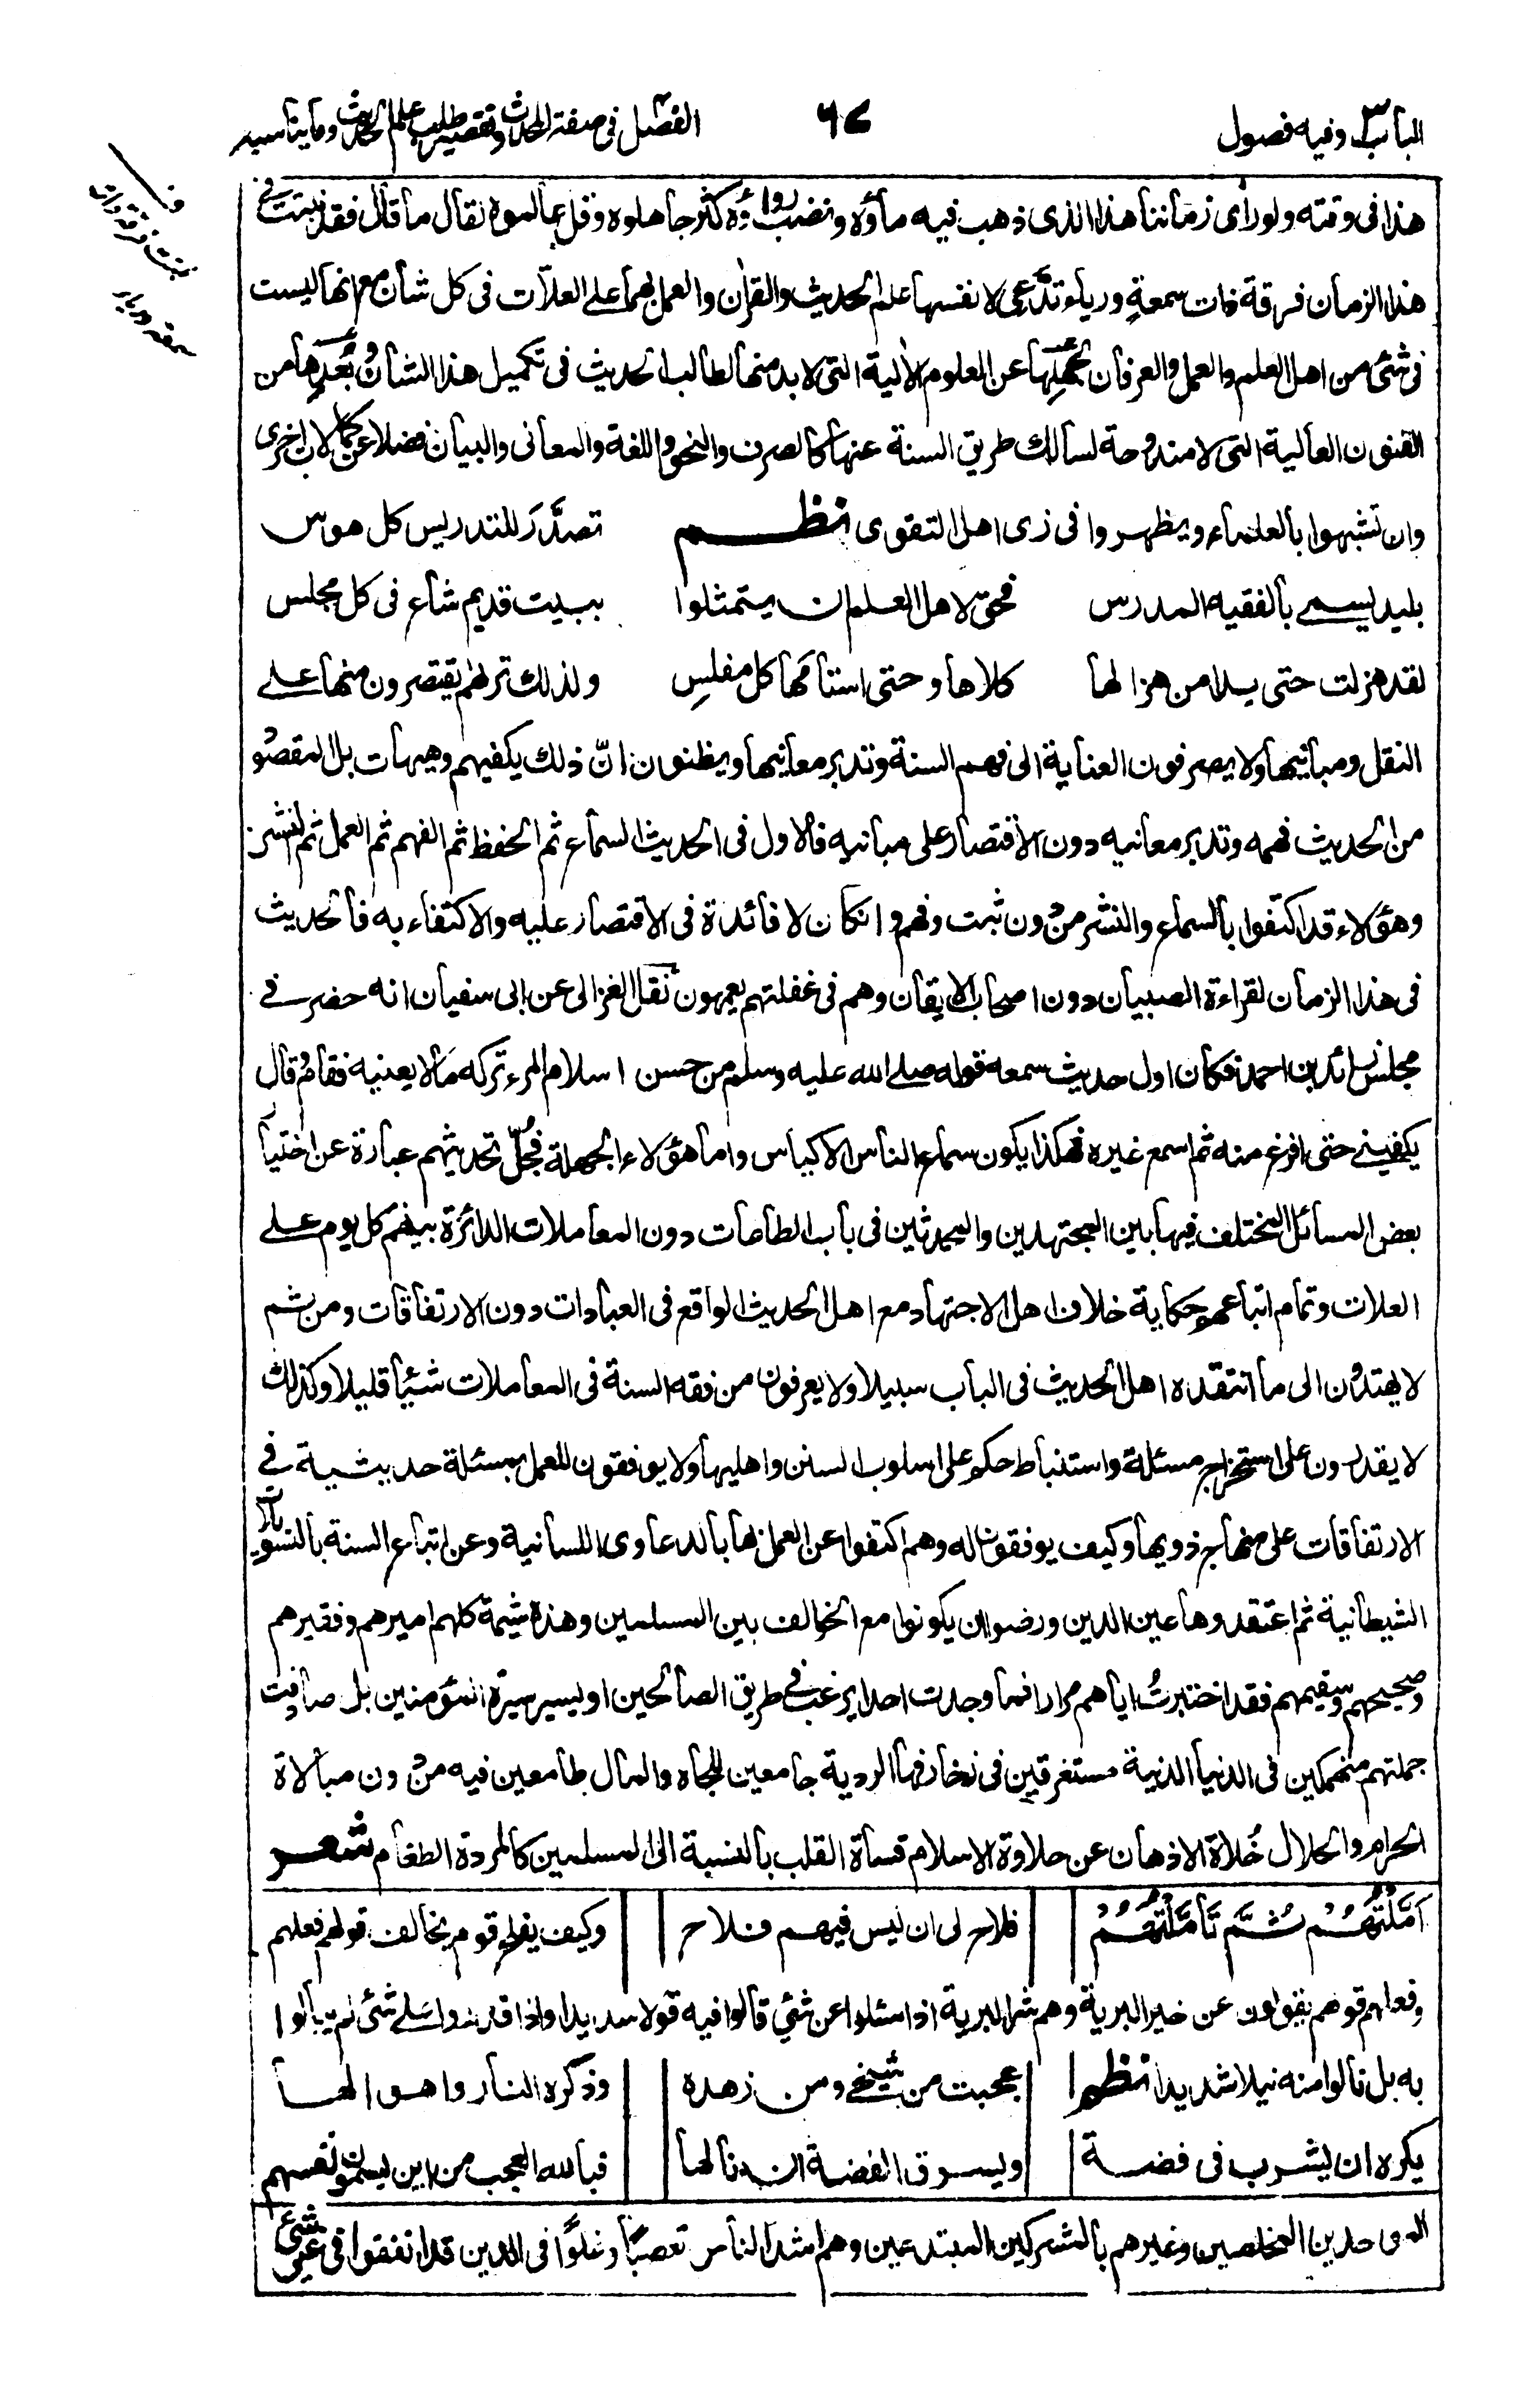 الباب ٣ وفيه فصول
٦٧
الفصل فى صفة المحدث وتقصير طلب علم الحديث وما يناسبه
هذا فى وقته ولو رأى زماننا هذا الذى ذهب فيه ماؤه ونضب رواؤه كثر جاهلوه وقل عالموه لقال ما قال فقد نبتت فى
هذا الزمان فرقة ذات سمعةٍ ورياء تدّعى لانفسها علم الحديث والقرأن والعمل بهما على العلاّت فى كل شأن مع انها ليست
فى شئ من اهل العلم والعمل والعرفان لجهلها عن العلوم الألية التى لا بد منها لطالب الحديث فى تكميل هذا الشان وبُعدِها من
الفنون العالية التى لا مندوحة لسالك طريق السنة عنها كالصرف والنحو واللغة والمعانى والبيان فضلا عن كمالات اخرى
وان تشبهوا بالعلماء ويظهروا فى زى اهل التقوى نظم تصدَّرَ للتدريس كل هوس
بليد يسمى بالفقيه المدرس فحق لاهل العلم ان يتمثلوا ببيت قديم شاع فى كل مجلس
لقد هزلت حتى بدا من هزالها كلاها وحتى استامها كل مفلسِ ولذلك ترٰهم يقتصرون منها على
النقل ومبانيها ولا يصرفون العناية الى فهم السنة وتدبر معانيها ويظنون انّ ذلك يكفيهم وهيهات بل المقصود
من الحديث فهمه وتدبر معانيه دون الاقتصار على مبانيه فالاول فى الحديث السماع ثم الحفظ ثم الفهم ثم العمل ثم النشر
وهؤلاء قد اكتفوا بالسماع والنشر من دون ثبت وفهم وانكان لا فائدة فى الاقتصار عليه والاكتفاء به فالحديث
فى هذا الزمان لقراءة الصبيان دون اصحاب الايقان وهم فى غفلتهم يعمهون نقل الغزالى عن ابى سفيان انه حضر فى
مجلس زائد بن احمد فكان اول حديث سمعه قوله صلى الله عليه وسلم من حسن اسلام المرء تركه ما لا يعنيه فقام وقال
يكفينى حتى افرغ منه ثم اسمع غيره فهكذا يكون سماع الناس الاكياس واما هؤلاء الجهلة فجُلّ تحديثهم عبارة عن اختيار
بعض المسائل المختلف فيها بين المجتهدين والمحدثين فى باب الطاعات دون المعاملات الدائرة بينهم كل يوم على
العلات وتمام اتباعهم حكاية خلاف اهل الاجتهاد مع اهل الحديث الواقع فى العبادات دون الارتفاقات ومن ثم
لا يهتدون الى ما انتقده اهل الحديث فى الباب سبيلا ولا يعرفون من فقه السنة فى المعاملات شيئا قليلا وكذلك
لا يقدرون على استخراج مسئلة واستنباط حكم على اسلوب السنن واهليها ولا يوفقون للعمل بمسئلة حديثية فى
الارتفاقات على منهاج ذويها وكيف يوفقون له وهم اكتفوا عن العمل بها بالدعاوى اللسانية وعن اتباع السنة بالتسويلات
الشيطانية ثم اعتقدوها عين الدين ورضوا بان يكونوا مع الخوالف بين المسلمين وهذه شيمة كلهم اميرهم وفقيرهم
وصحيحهم وسقيمهم فقد اختبرتُ اياهم مرارا فما وجدت احدا يرغب فى طريق الصالحين او يسير سيرة المؤمنين بل صادفت
جملتهم منهمكين فى الدنيا الدنية مستغرقين فى زخارفها الردية جامعين للجاه والمال طامعين فيه من دون مبالاة
الحرام والحلال خُلاة الاذهان عن حلاوة الاسلام قساة القلب بالنسبة الى المسلمين كالمردة الطغام شعر
اَمَّلْتُهُمْ ثُمَّ تَأَمَّلْتُهُمْ فلاح لى ان ليس فيهم فلاح وكيف يفلح قوم يخالف قولهم فعلهم
وفعلهم قولهم يقولون عن خير البرية وهم شر البرية اذا سئلوا عن شئ قالوا فيه قولا سديدا واذا قدروا على شئ لم يبالوا
به بل نالوا منه نيلا شديدا نظم عجبت من شيخى ومن زهده وذكره النار واهوالها
يكره ان يشرب فى فضة ويسرق الفضة ان نالها فبالله العجب من اين يسمون نفسهم
الموحدين المخلصين وغيرهم بالمشركين المبتدعين وهم اشد الناس تعصبًا وغلوًا فى الدين قد انفقوا فى غير شئ